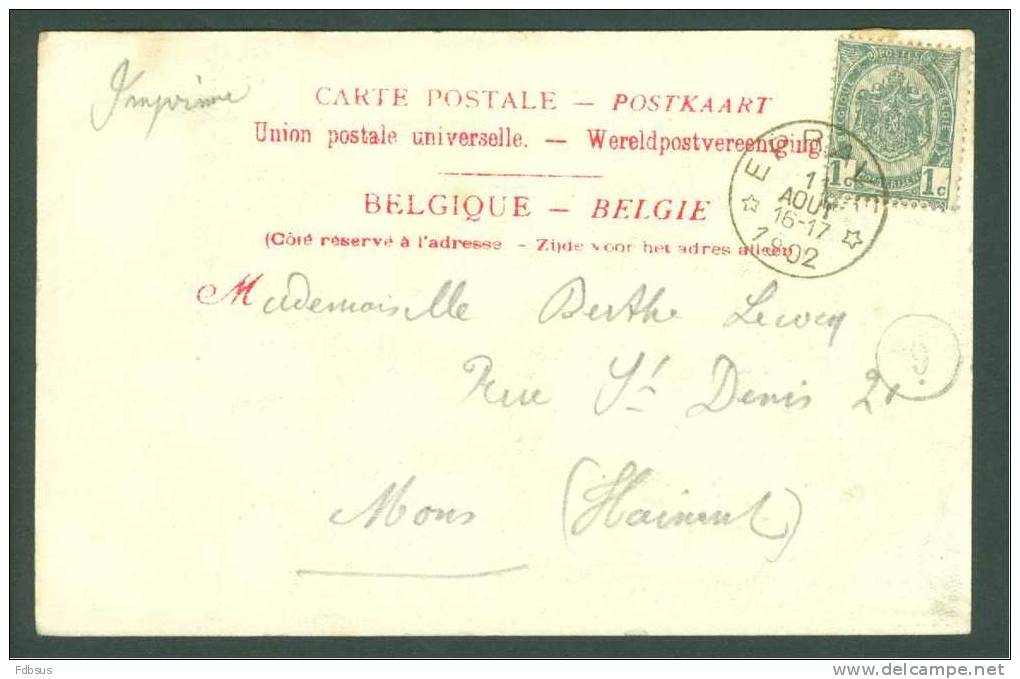 Imprimé
CARTE POSTALE — POSTKAART
Union postale universelle. — Wereldpostvereeniging.
BELGIQUE — BELGIE
(Côté réservé à l'adresse - Zijde voor het adres alleen)
POSTES
1c 1c
11
AOUT
16-17
1902
Mademoiselle Berthe Lecocq
Rue St Denis
9
Mons (Hainaut)
Fdbsus
www.delcampe.net